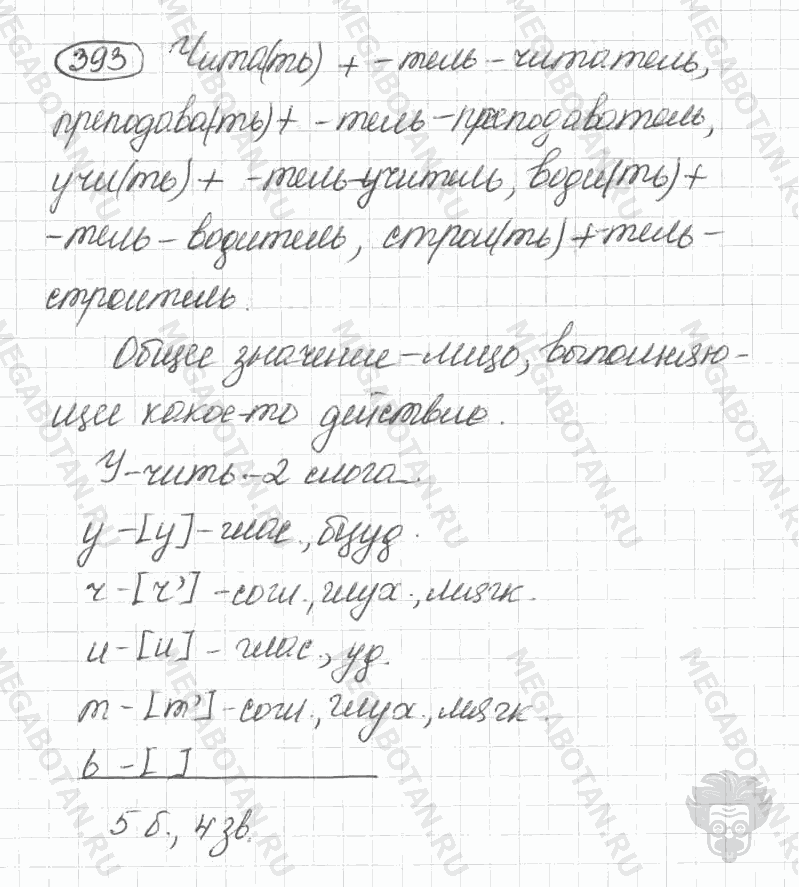 393 Чита(ть) + -тель - читатель,
преподава(ть) + -тель - преподаватель,
учи(ть) + -тель - учитель, води(ть) +
-тель - водитель, строи(ть) + тель -
строитель.
Общее значение - лицо, выполняю-
щее какое-то действие.
У-чить - 2 слога.
у - [у] - глас., безуд.
ч - [ч'] - согл., глух., мягк.
и - [и] - глас., уд.
т - [т'] - согл., глух., мягк.
ь - [ ]
5 б., 4 зв.
MEGABOTAN.RU